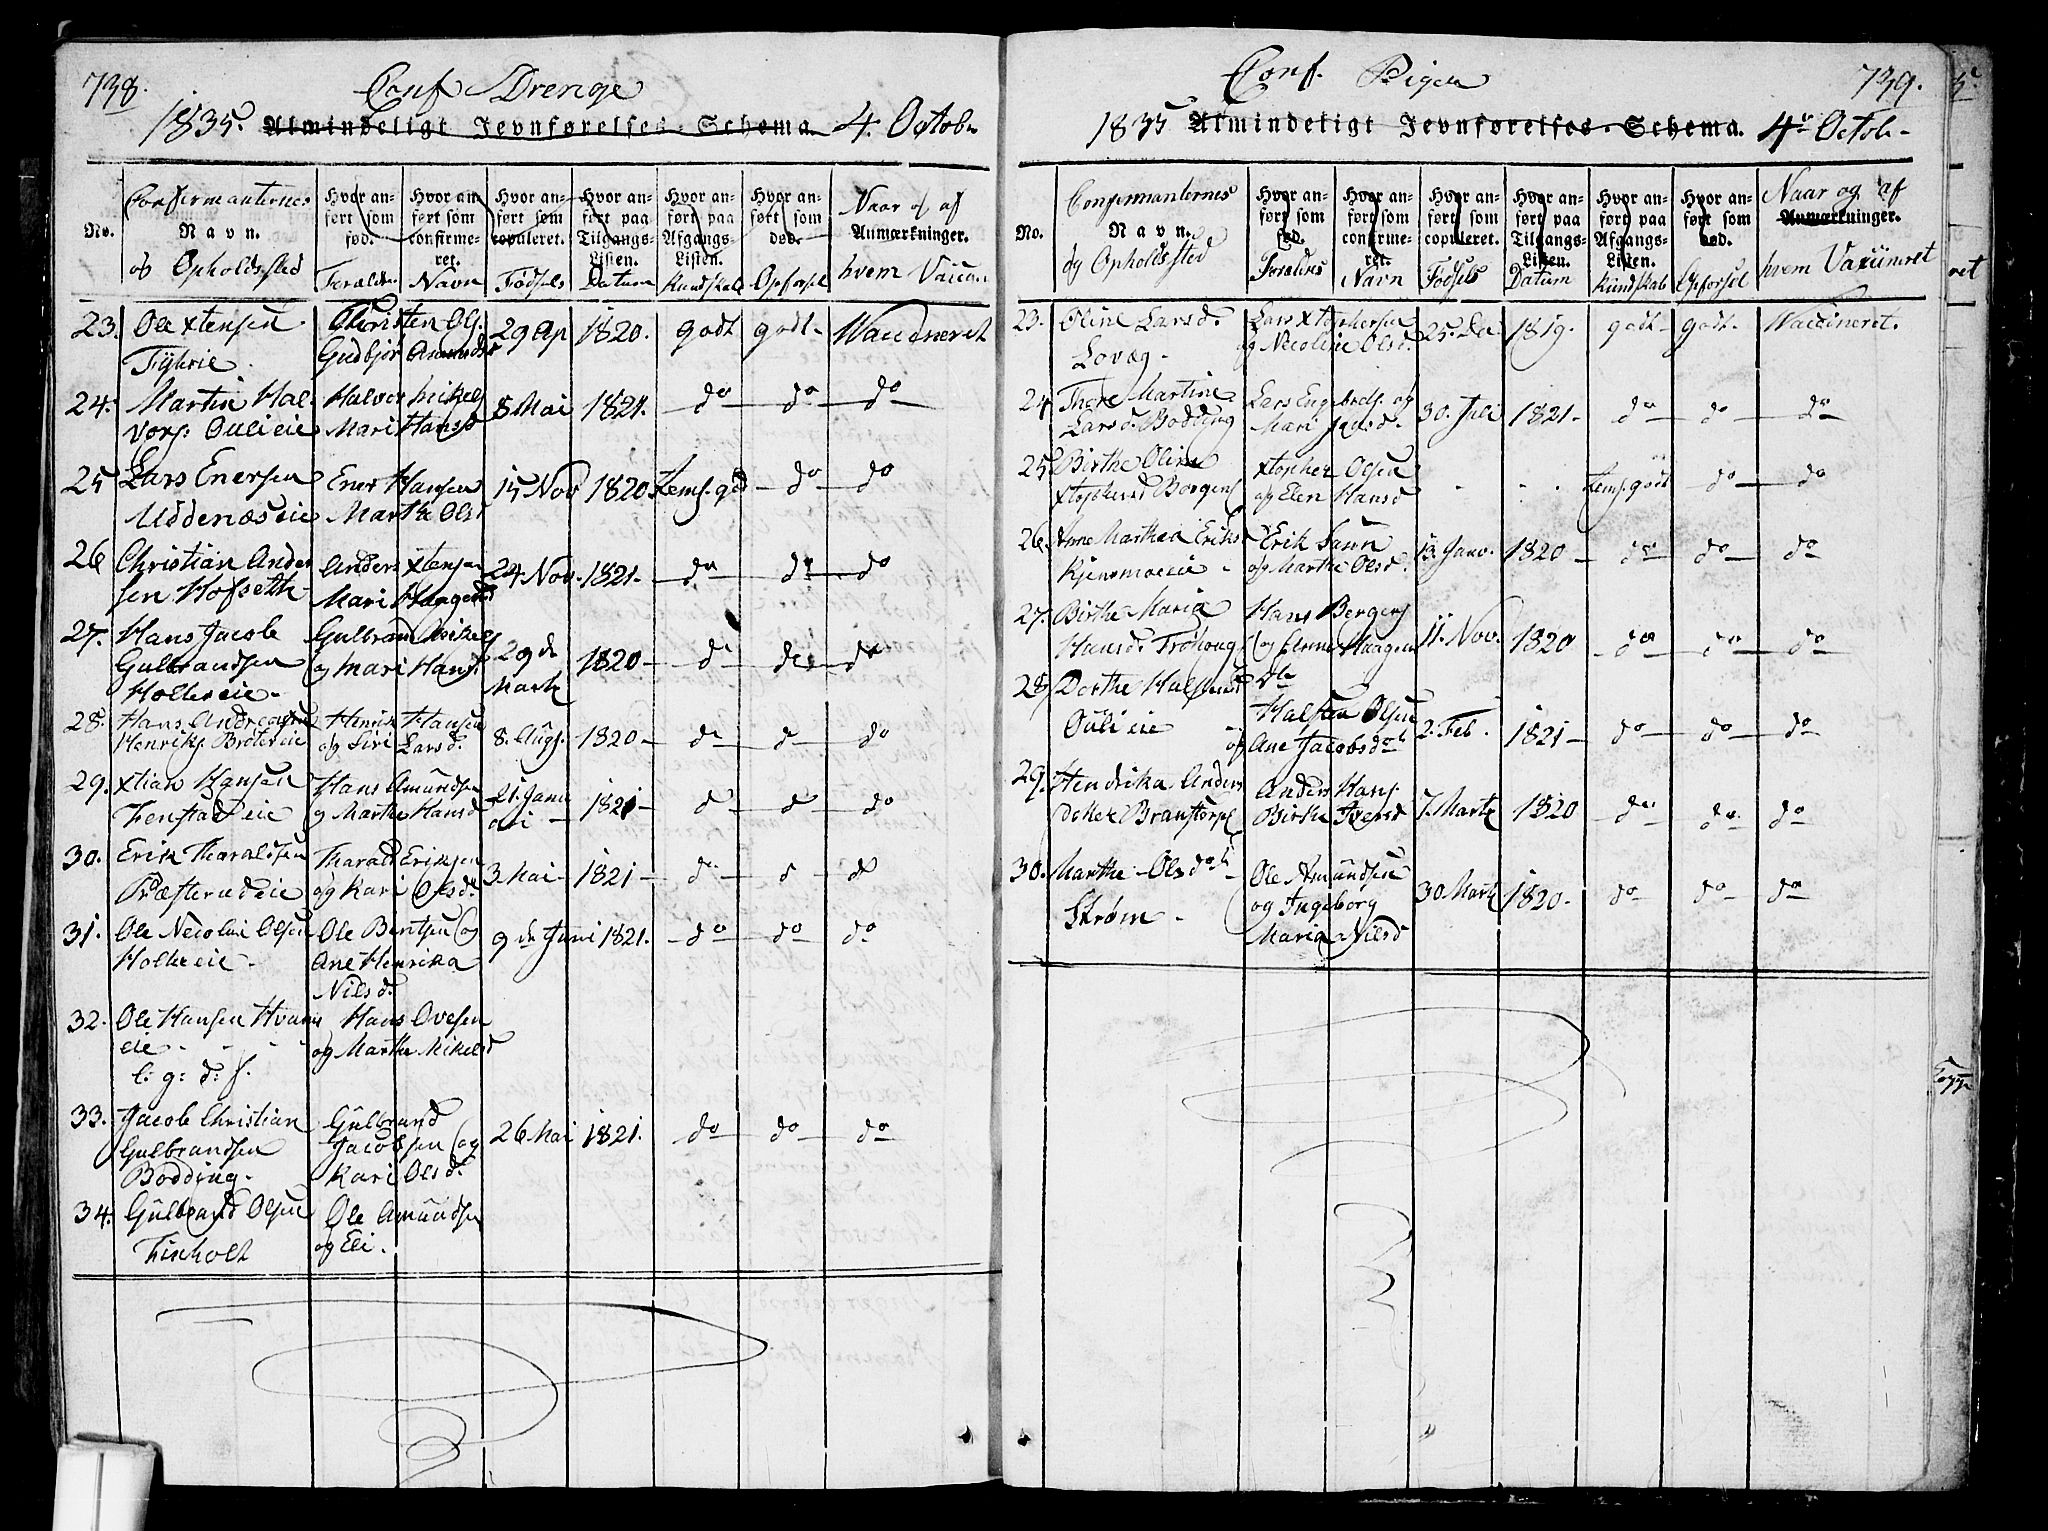 738.
Conf Drenge
1835. Almindeligt Jevnførelses-Schema. 4. Octob.
No.
Confirmanternes
Navn.
og Opholdssted
Hvor anført som fød.
Forældres
Hvor anført som confirmeret.
Navn
Hvor anført som copuleret.
Fødsels
Hvor anført paa Tilgangs-Listen.
Datum
Hvor anført paa Afgangs-Listen.
Kundskab
Hvor anført som død.
Opførsel
Naar og af
Anmærkninger.
hvem Vaccin
23. Ole Xtensen Christen Ols. 29 Ap 1820. godt godt Vaccineret
Gudbjør Amunds
24. Martin Hal- Halvor Mikels 8 Mai 1821. do do do
vors. Oulieie Mari Hansd
25 Lars Enersen Ener Hansen 15 Nov 1820 Tems. god do do
Uddenæseie Marthe Olsd
26 Christian Ander Anders Xtensen 24 Nov. 1821. do do do
sen Hofseth Mari Haagensd
27. Hans Jacob Gulbrand Mikels 29 de 1820 do do do
Gulbrandsen og Mari Hansd Martz
Holtereie
28. Hans Andreas Henrik Hansen 8. Augs. 1820 do do do
Henriks. Brøtereie og Siri Larsd.
29. Xtian Hansen Hans Amundsen 21. Janu 1821 do do do
Fenstad eie og Marthe Hansd ari
30. Erik Tharaldsen Tharald Eriksen 3. Mai 1821 do do do
Præsterud eie og Kari Olsd.
31. Ole Nicolai Olsen Ole Bentsen og 9 de Juni 1821. do do do
Holtereie Ane Henrika
Nilsd.
32. Ole Hansen Hvam Hans Ovesen
eie og Marthe Mikelsd
l: g: d: f.
33. Jacob Christian Gulbrand 26 Mai 1821. do do do
Gulbrandsen Jacobsen og
Bodding. Kari Olsd.
34. Gulbrand Olsen Ole Amundsen
Finholt og Eli.
739.
Conf. Piger
1835 Almindeligt Jevnførelses-Schema. 4de Octob.
No.
Confirmanternes
Navn.
og Opholdssted
Hvor anført som fød.
Forældres
Hvor anført som confirmeret.
Navn
Hvor anført som copuleret.
Fødsels
Hvor anført paa Tilgangs-Listen.
Datum
Hvor anført paa Afgangs-Listen.
Kundskab
Hvor anført som død.
Opførsel
Naar og af
Anmærkninger.
hvem Vaccineret
23. Oline Larsd. Lars Xtophersen 25. De 1819. godt godt Vaccineret.
Lovæg og Nicoline Olsd.
24 Thore Martine Lars Engebrets. og 30. Juli 1821 do do do
Larsd. Bodding Mari Jansd.
25. Birthe Oline Xtopher Olsen Tems. godt do do
Xtophersd Borgens og Elen Hansd
26. Ane Marthea Eriks Erik 13. Janv. 1820 do do do
Kjensmoeeie og Marthe Olsd.
27. Birthe Maria Hans Bergers 11. Nov. 1820 do do do
Hansd. Frøhoug og Anne Haagens
28 Dorthe Halstensd dtr
Oulieie Halsten Olsen 2. Feb. 1821 do do do
og Ane Jacobsdatt
29. Hendrika Anders Anders Hans. 7. Martz 1820 do do do
Birthe Iversd
30. Marthe Olsdatt Ole Amundsen 30 Martz 1820. do do do
Strøm og Ingeborg
Maria Nilsd